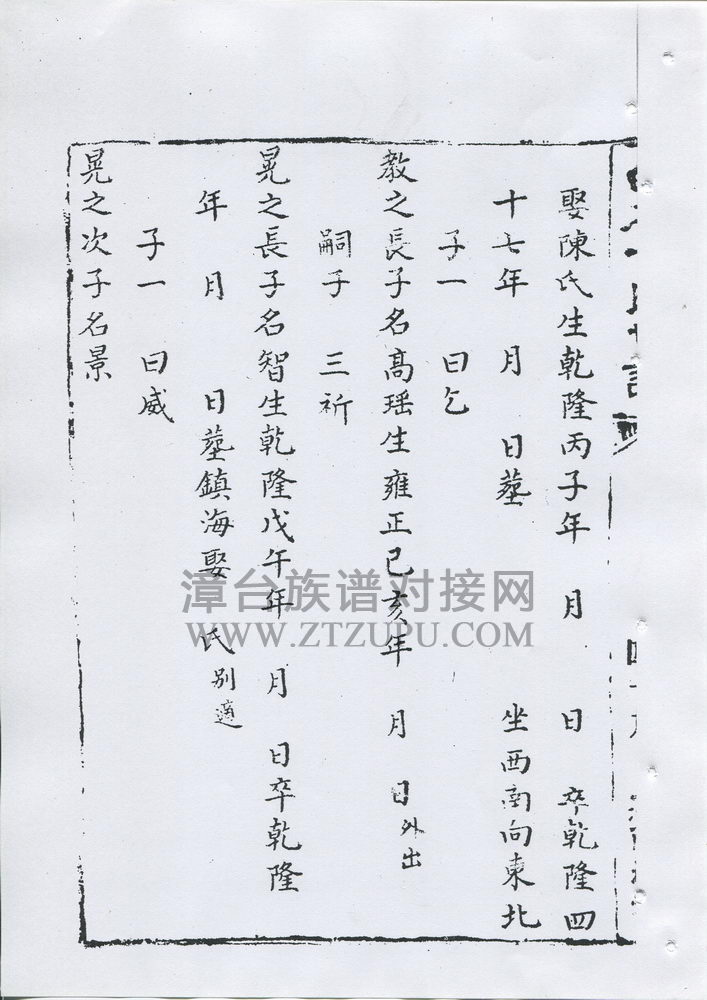 娶陳氏生乾隆丙子年 月 日 卒乾隆四
十七年 月 日塟 坐西南向東北
子一 曰乞
教之長子名高瑶生雍正已亥年 月 日外出
嗣子 三祈
晃之長子名智生乾隆戊午年 月 日卒乾隆
年 月 日塟鎮海娶 氏別適
子一 曰威
晃之次子名景
漳台族谱对接网
WWW.ZTZUPU.COM